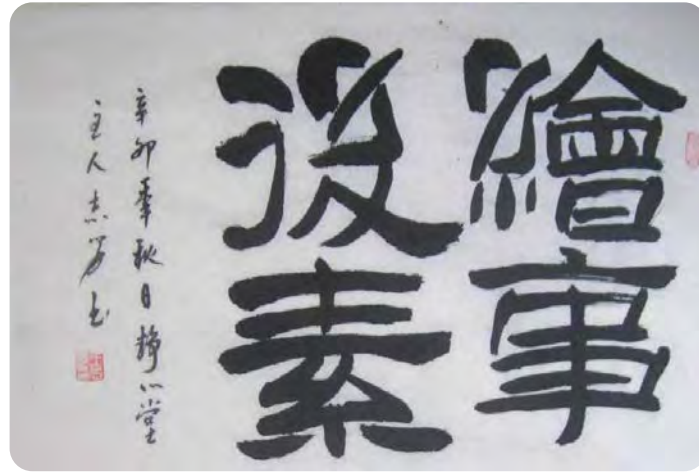 繪事
後素
辛卯年秋日静心堂
主人志书